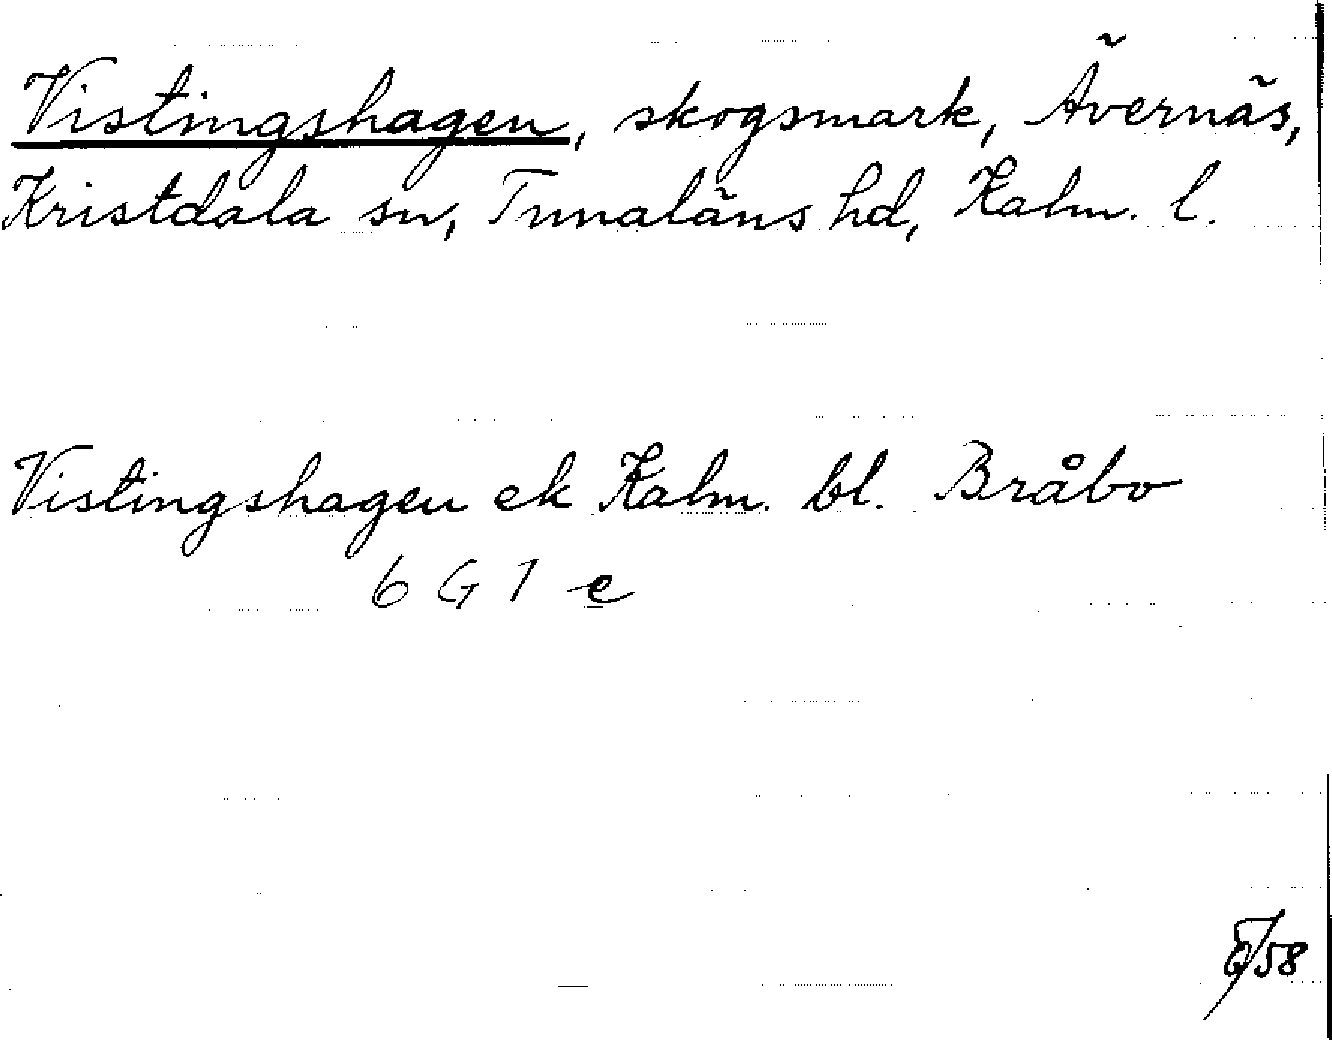 Vistingshagen, skogsmark, Ävernäs,
Kristdala sn, Tunaläns hd, Kalm. l.
Vistingshagen ek Kalm. bl. Bråbo
6 G 1 e
/58